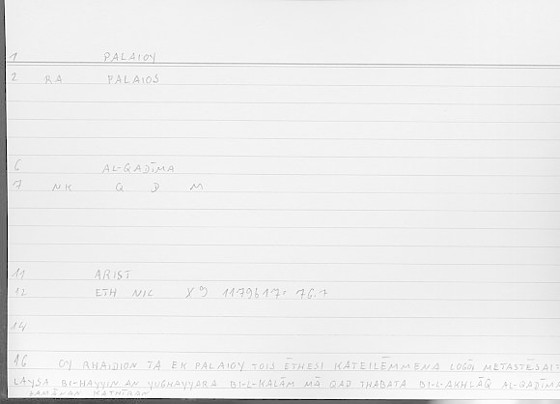 1 PALAIOY
2 RA PALAIOS
6 AL-QADĪMA
7 NK Q D M
11 ARIST
12 ETH NIC 1179b17: 76.7
14
16 OY RHAIDION TA EK PALAIOY TOIS ĒTHESI KATEILĒMMENA LOGŌI METASTĒSAI:
LAYSA BI-HAYYIN AN YUGHAYYARA BI-L-KALĀM MĀ QAD THABATA BI-L-AKHLĀQ AL-QADĪMA
ZAMĀNAN KATHĪRAN